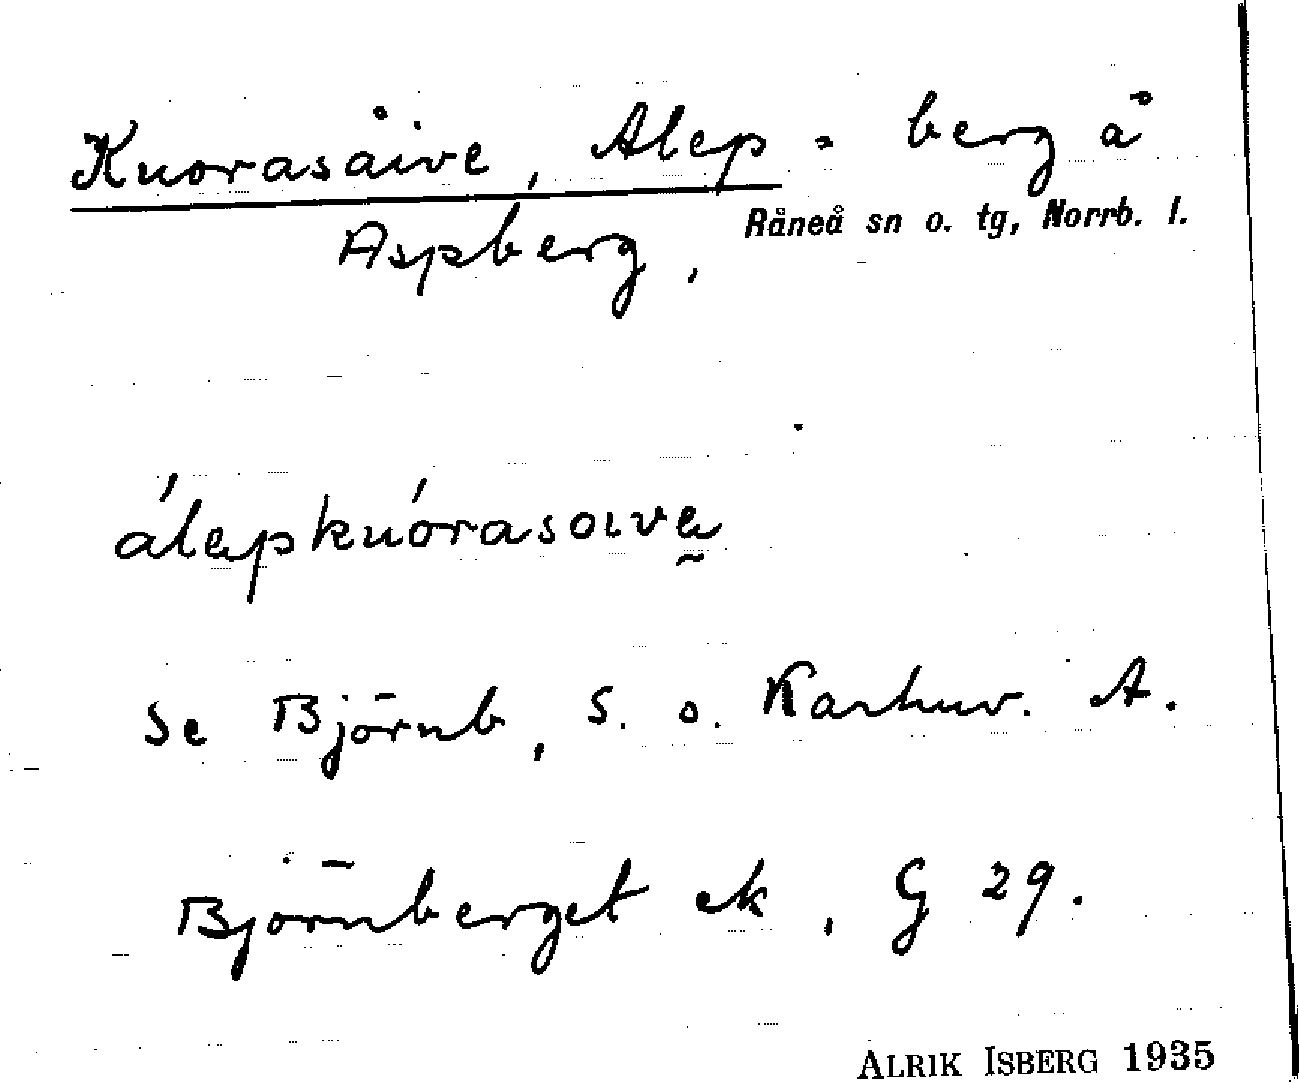 Kuorasåive, Alep = berg å
Råneå sn o. tg, Norrb. l.
Aspberg,
álapkuórasoıvḁ
se Björnb, S. o. Karhuv. A.
Björnberget ek, G 29.
ALRIK ISBERG 1935